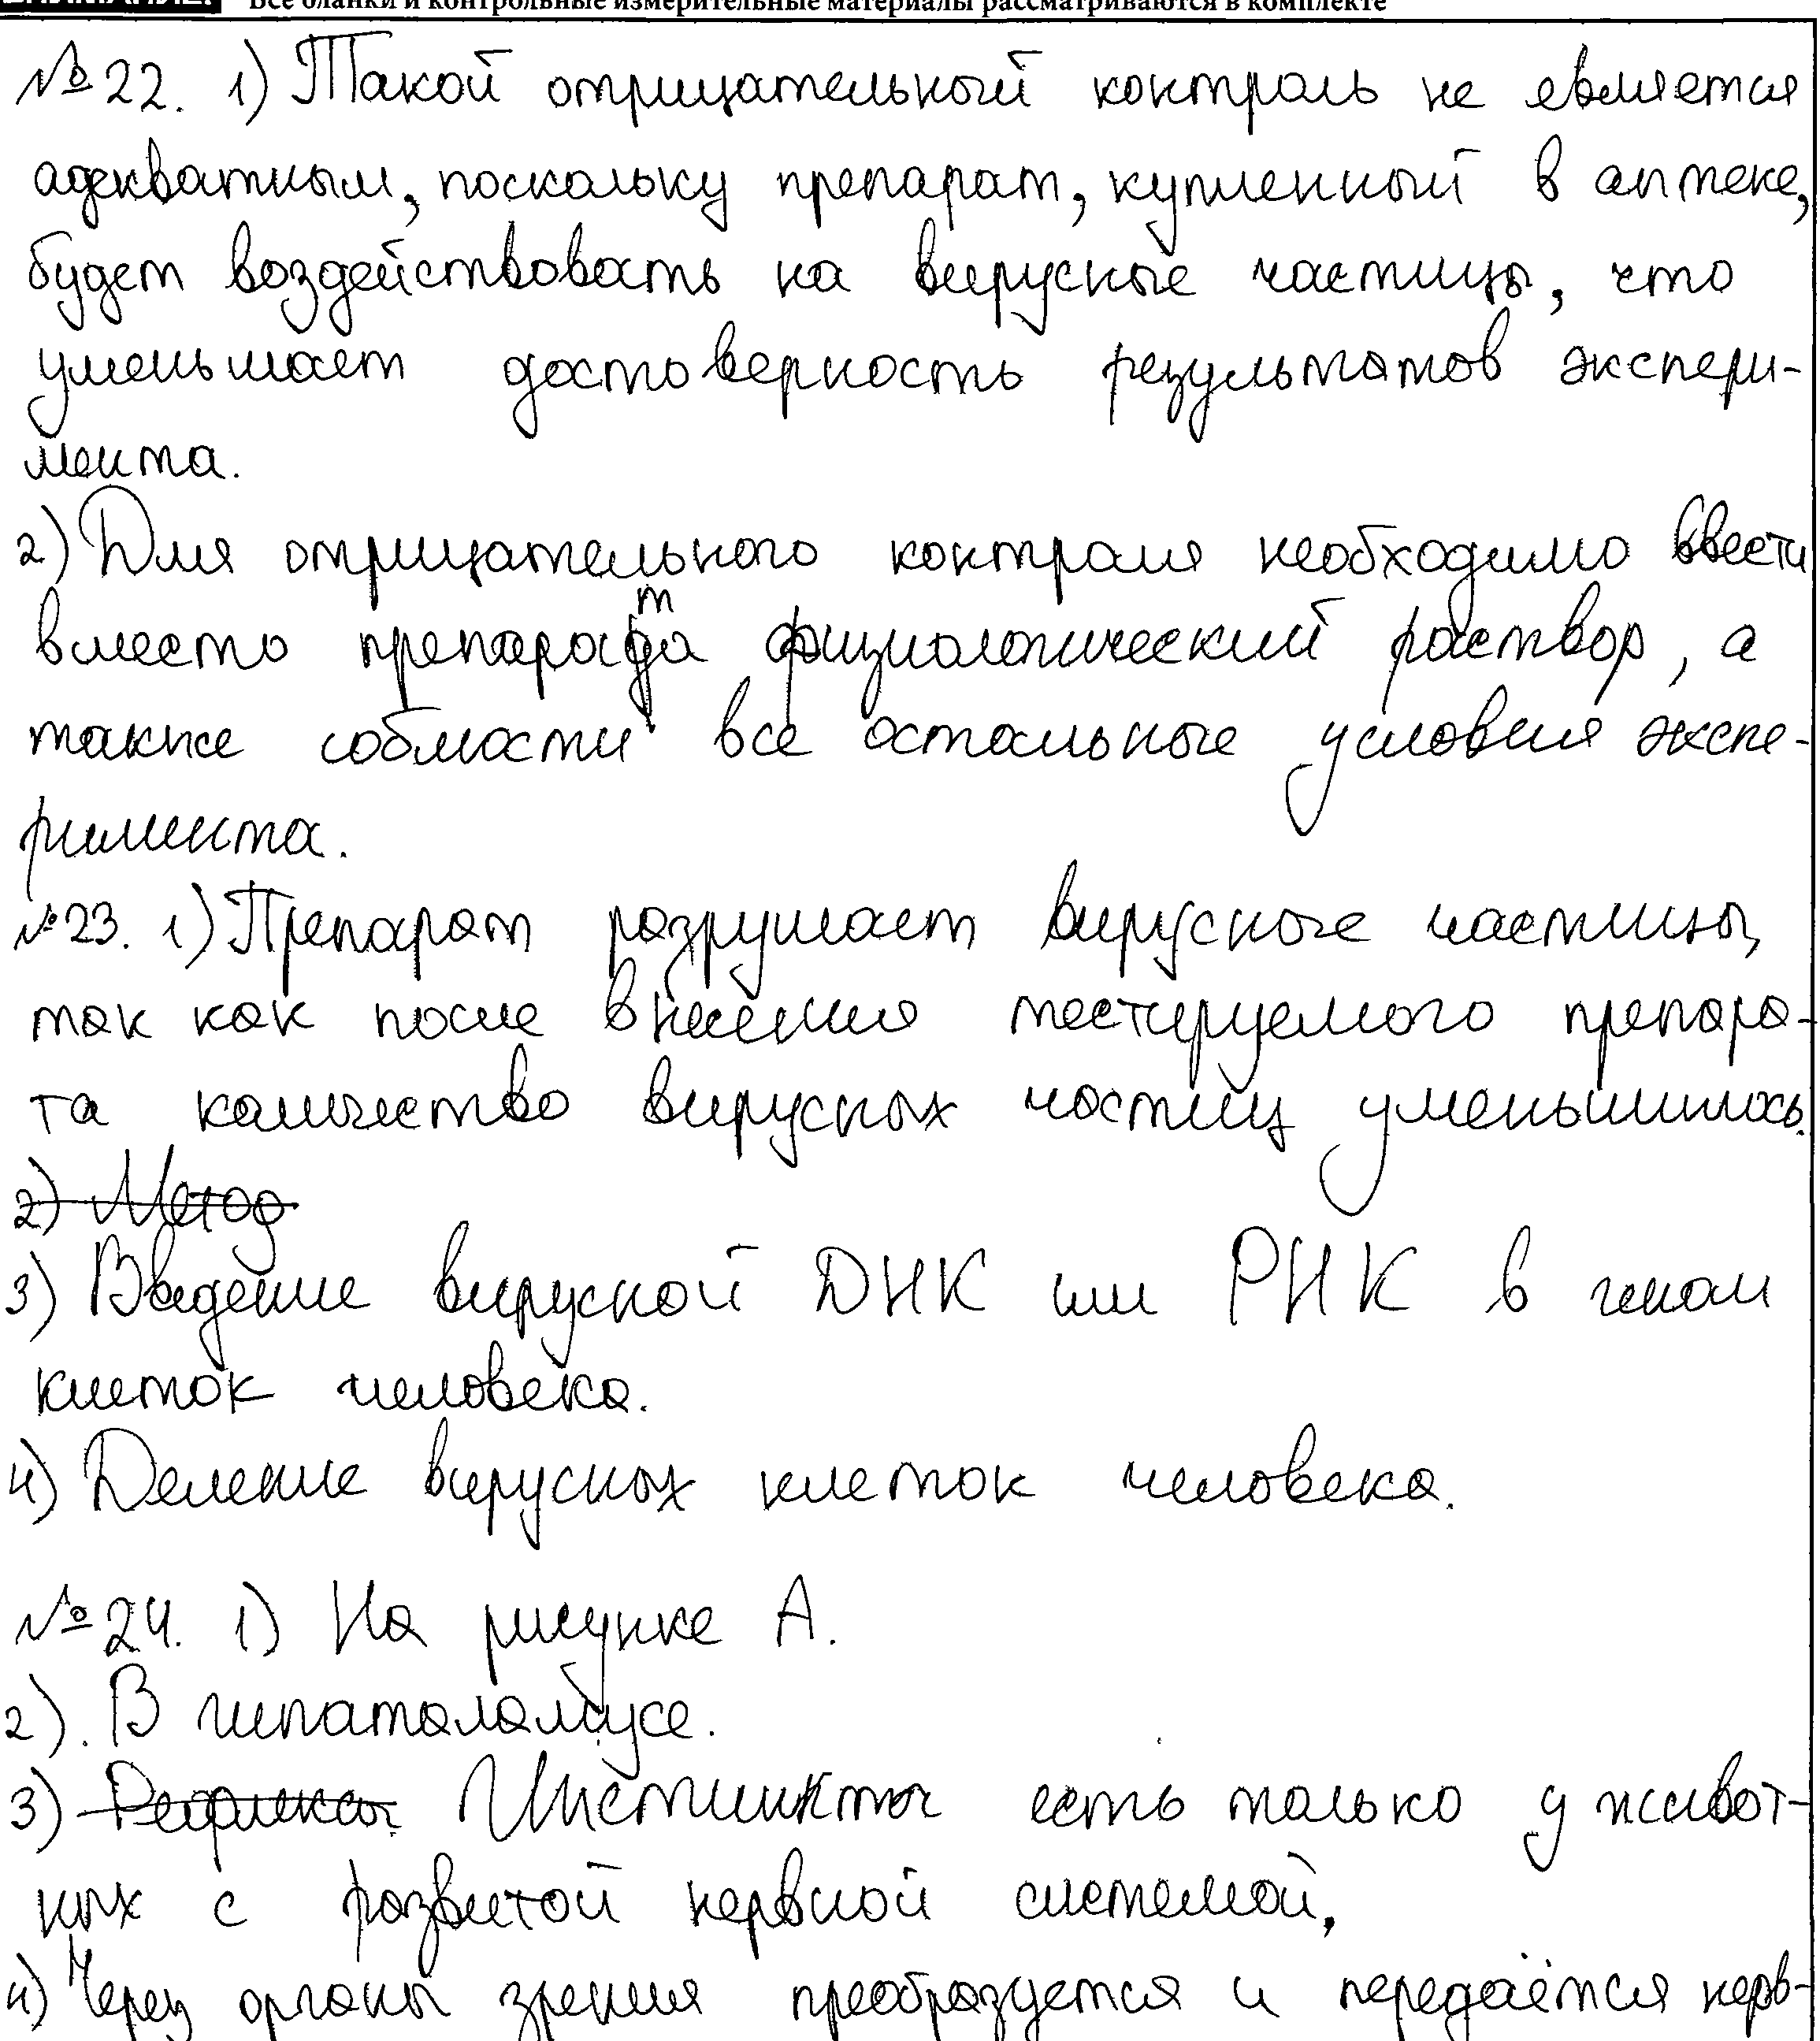 Все бланки и контрольные измерительные материалы рассматриваются в комплекте
№22. 1) Такой отрицательный контроль не является
адекватным, поскольку препарат, купленный в аптеке,
будет воздействовать на вирусные частицы, что
уменьшает достоверность результатов экспери-
мента.
2) Для отрицательного контроля необходимо ввести
вместо препарата физиологический раствор, а
также соблюсти все остальные условия экспе-
римента.
№23. 1) Препарат разрушает вирусные частицы,
так как после внесения тестируемого препара-
та количество вирусных частиц уменьшилось.
2) Метод
3) Введение вирусной ДНК или РНК в геном
клеток человека.
4) Деление вирусных клеток человека.
№24. 1) На рисунке А.
2). В гипаталамусе.
3) Рефлексы Инстинкты есть только у живот-
ных с развитой нервной системой.
4) Через органы зрения преобразуется и передаётся нерв-